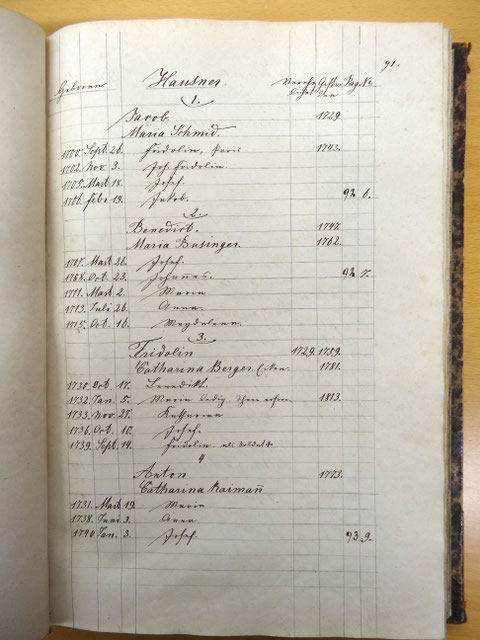 91.
Geboren Hausner. Verehe- Gestor- Pag. No.
licht ben
1.
Jacob. 1729.
Maria Schmid.
1700. Sept. 26. Fridolin, 1743.
1702. Nov. 3. Joh. Fridolin.
1705. Mart. 18. Josef.
1706. Febr. 19. Jakob. 92 6.
2.
Benedict. 1747.
Maria Businger. 1762.
1707. Mart. 26. Josef.
1708. Oct. 23. Johannes. 92 7.
1711. Mart. 2. Maria
1713. Juli 26. Anna.
1715. Oct. 16. Magdalena.
3.
Fridolin 1729. 1759.
Catharina Berger 1781.
1730. Oct. 17. Benedikt.
1732. Jan. 5. Maria ledig 1813.
1733. Nov. 27. Katharina
1736. Oct. 10. Josef.
1739. Sept. 14. Fridolin als Soldat
4
Anton 1773.
Catharina Raimañ
1731. Mart. 19. Maria
1738. Juni 3. Anna
1740 Jan. 3. Josef. 93 9.